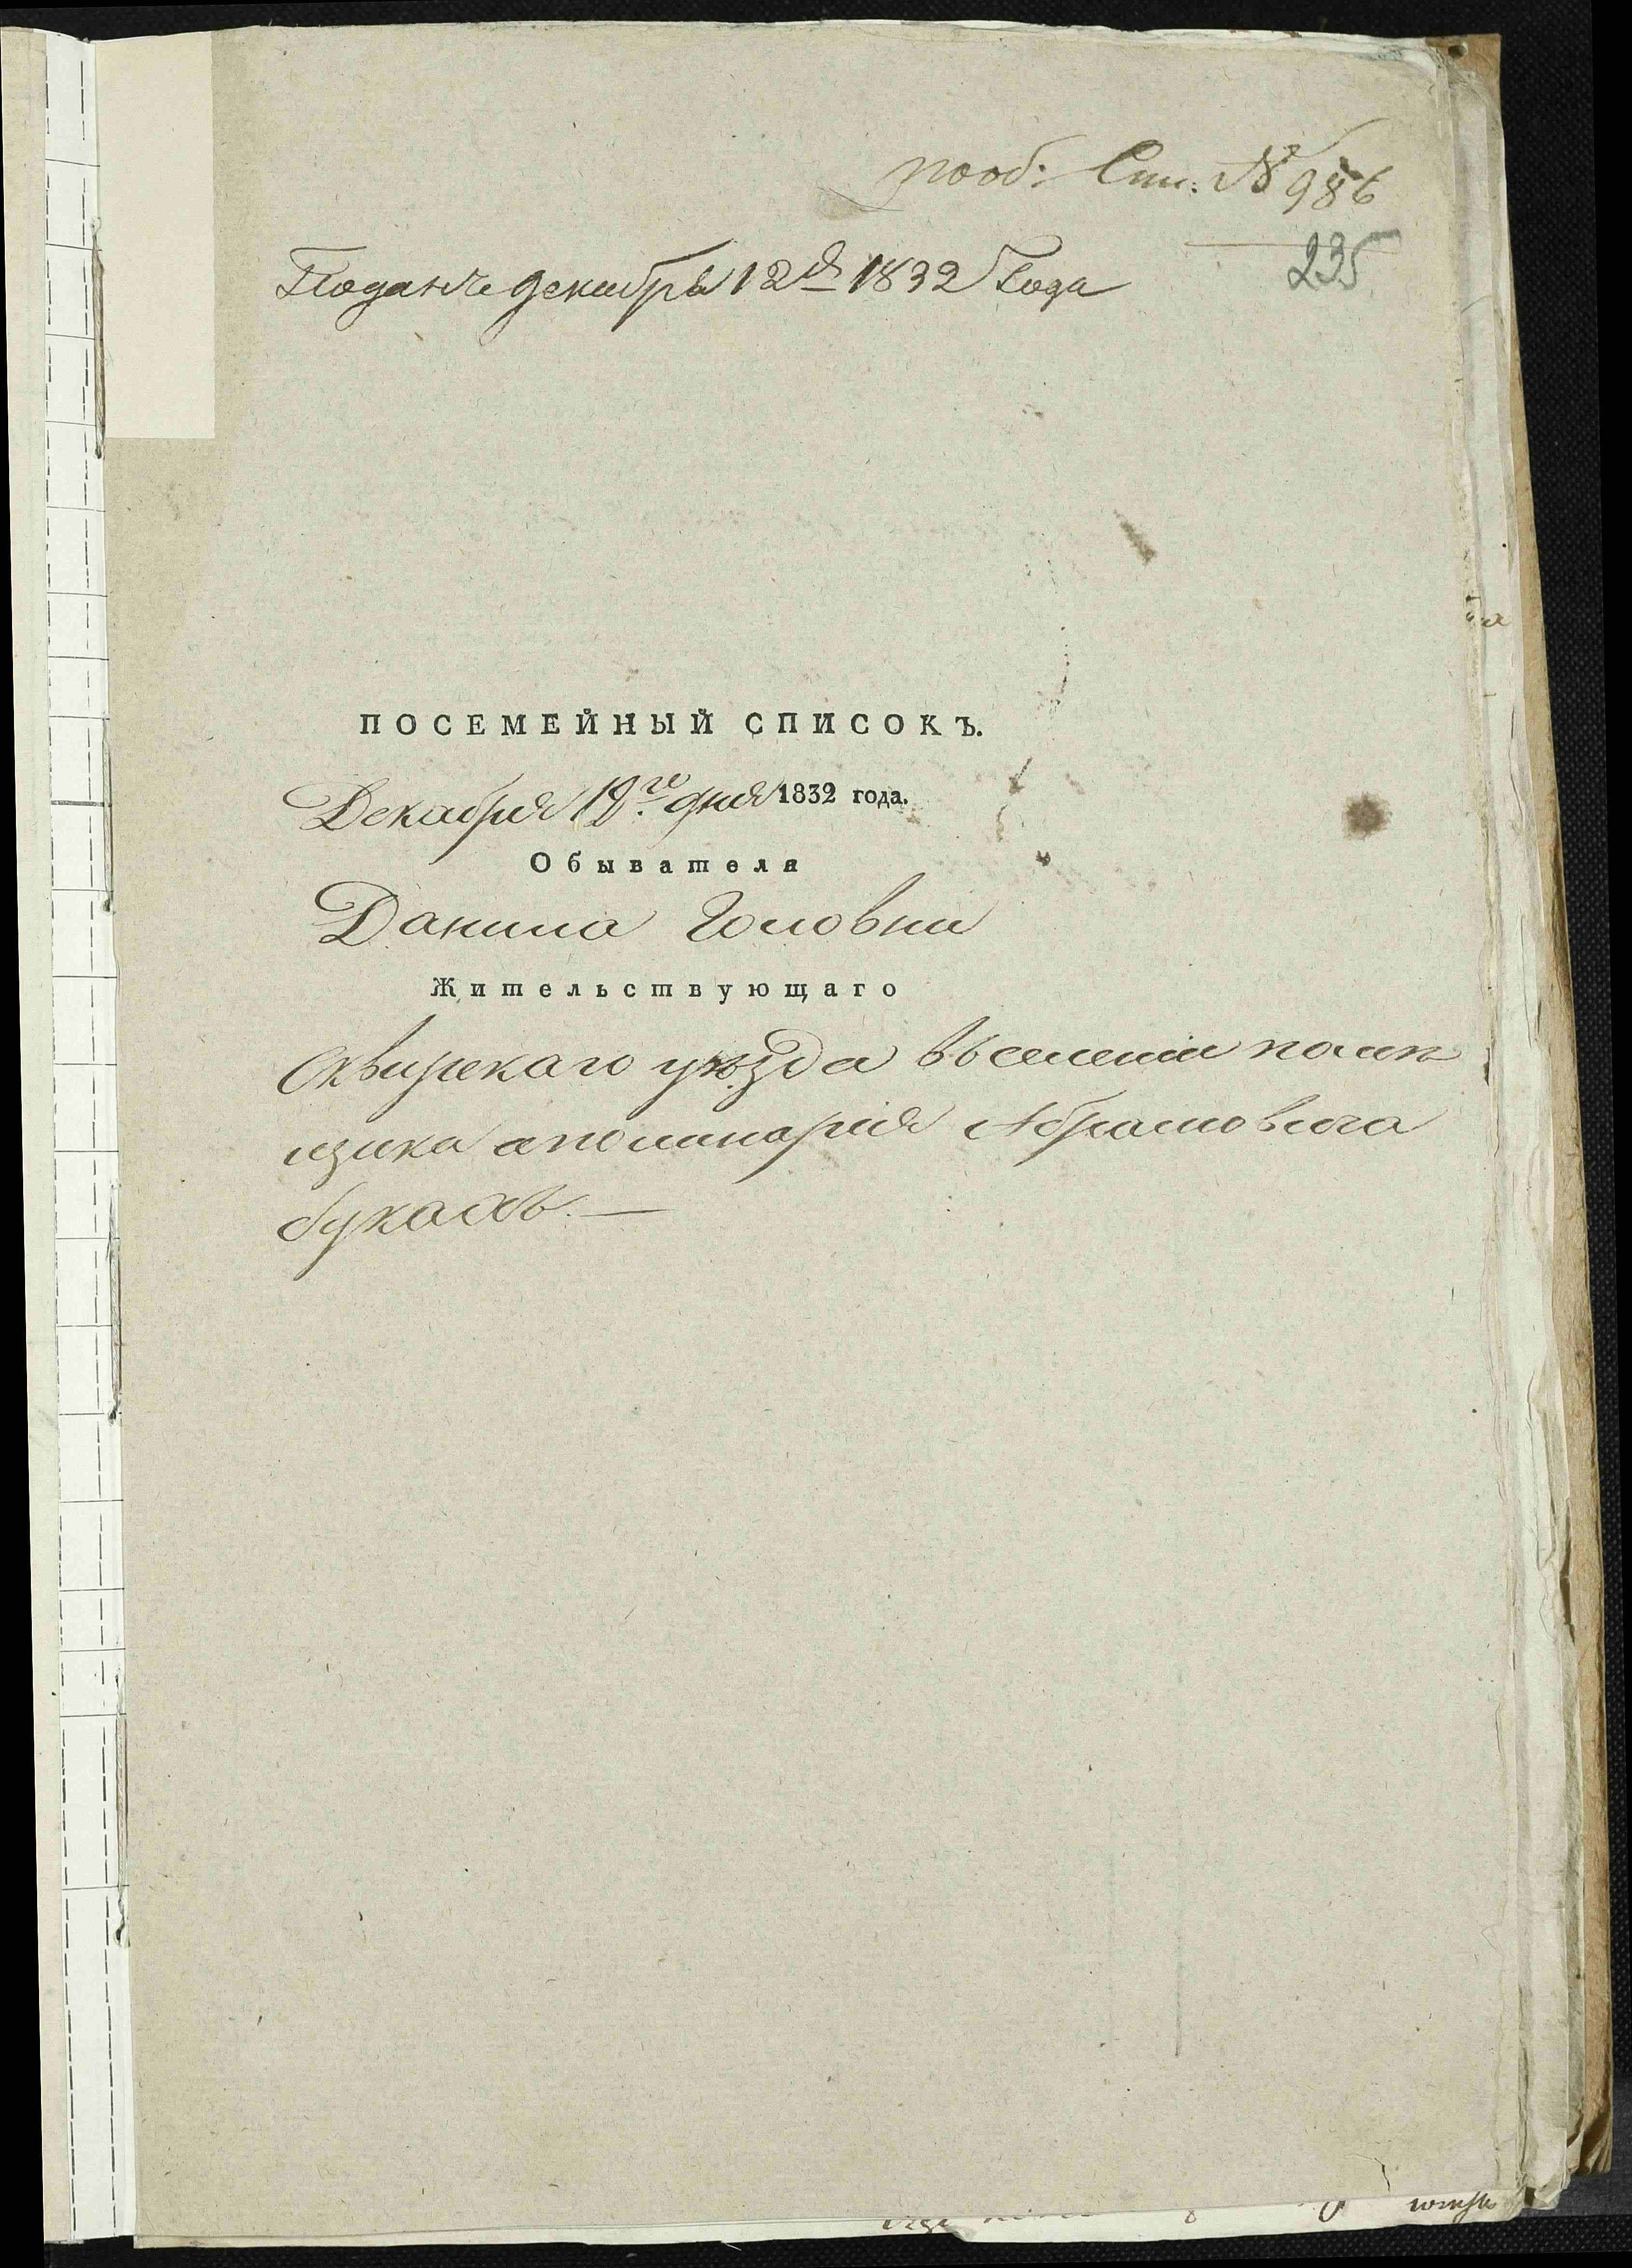 № 986
235
Поданъ декабря 12 д 1832 Года
ПОСЕМЕЙНЫЙ СПИСОКЪ.
Декабря 12го дня 1832 года.
Обывателя
Данила Головни
Жительствующаго
Сквирскаго уѣзда вселении помѣ
щика аполинария Абрамовича
букахъ.—